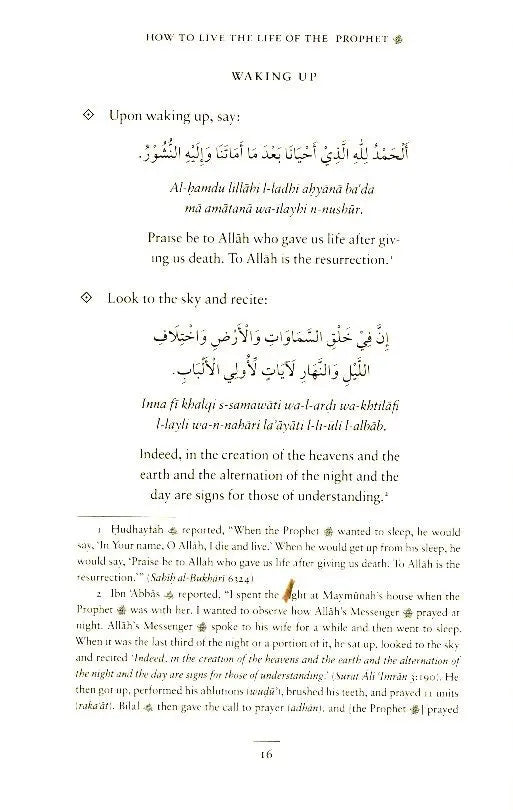 HOW TO LIVE THE LIFE OF THE PROPHET ﷺ
WAKING UP
Upon waking up, say:
أَلْحَمْدُ لِلَّهِ الَّذِيْ أَحْيَانَا بَعْدَ مَا أَمَاتَنَا وَإِلَيْهِ النُّشُوْرُ.
Al-ḥamdu lillāhi l-ladhi aḥyānā ba'da
mā amātanā wa-ilayhi n-nushūr.
Praise be to Allāh who gave us life after giv-
ing us death. To Allāh is the resurrection.¹
Look to the sky and recite:
إِنَّ فِيْ خَلْقِ السَّمَاوَاتِ وَالْأَرْضِ وَاخْتِلَافِ
اللَّيْلِ وَالنَّهَارِ لَآيَاتٍ لِّأُولِي الْأَلْبَابِ.
Inna fī khalqi s-samawāti wa-l-ardi wa-khtilāfi
l-layli wa-n-nahāri la'āyāti l-li-ūli l-albāb.
Indeed, in the creation of the heavens and the
earth and the alternation of the night and the
day are signs for those of understanding.²
1 Ḥudhayfah reported, "When the Prophet ﷺ wanted to sleep, he would
say, 'In Your name, O Allāh, I die and live.' When he would get up from his sleep, he
would say, 'Praise be to Allāh who gave us life after giving us death. To Allāh is the
resurrection.'" (Sahīh al-Bukhārī 6324)
2 Ibn 'Abbās reported, "I spent the at Maymūnah's house when the
Prophet ﷺ was with her. I wanted to observe how Allāh's Messenger ﷺ prayed at
night. Allāh's Messenger ﷺ spoke to his wife for a while and then went to sleep.
When it was the last third of the night or a portion of it, he sat up, looked to the sky
and recited 'Indeed, in the creation of the heavens and the earth and the alternation of
the night and the day are signs for those of understanding.' (Surat Āli 'Imrān 3:190). He
then got up, performed his ablutions (wuḍū'), brushed his teeth, and prayed 11 units
(raka'āt). Bilal then gave the call to prayer (adhān), and [the Prophet ﷺ] prayed
16